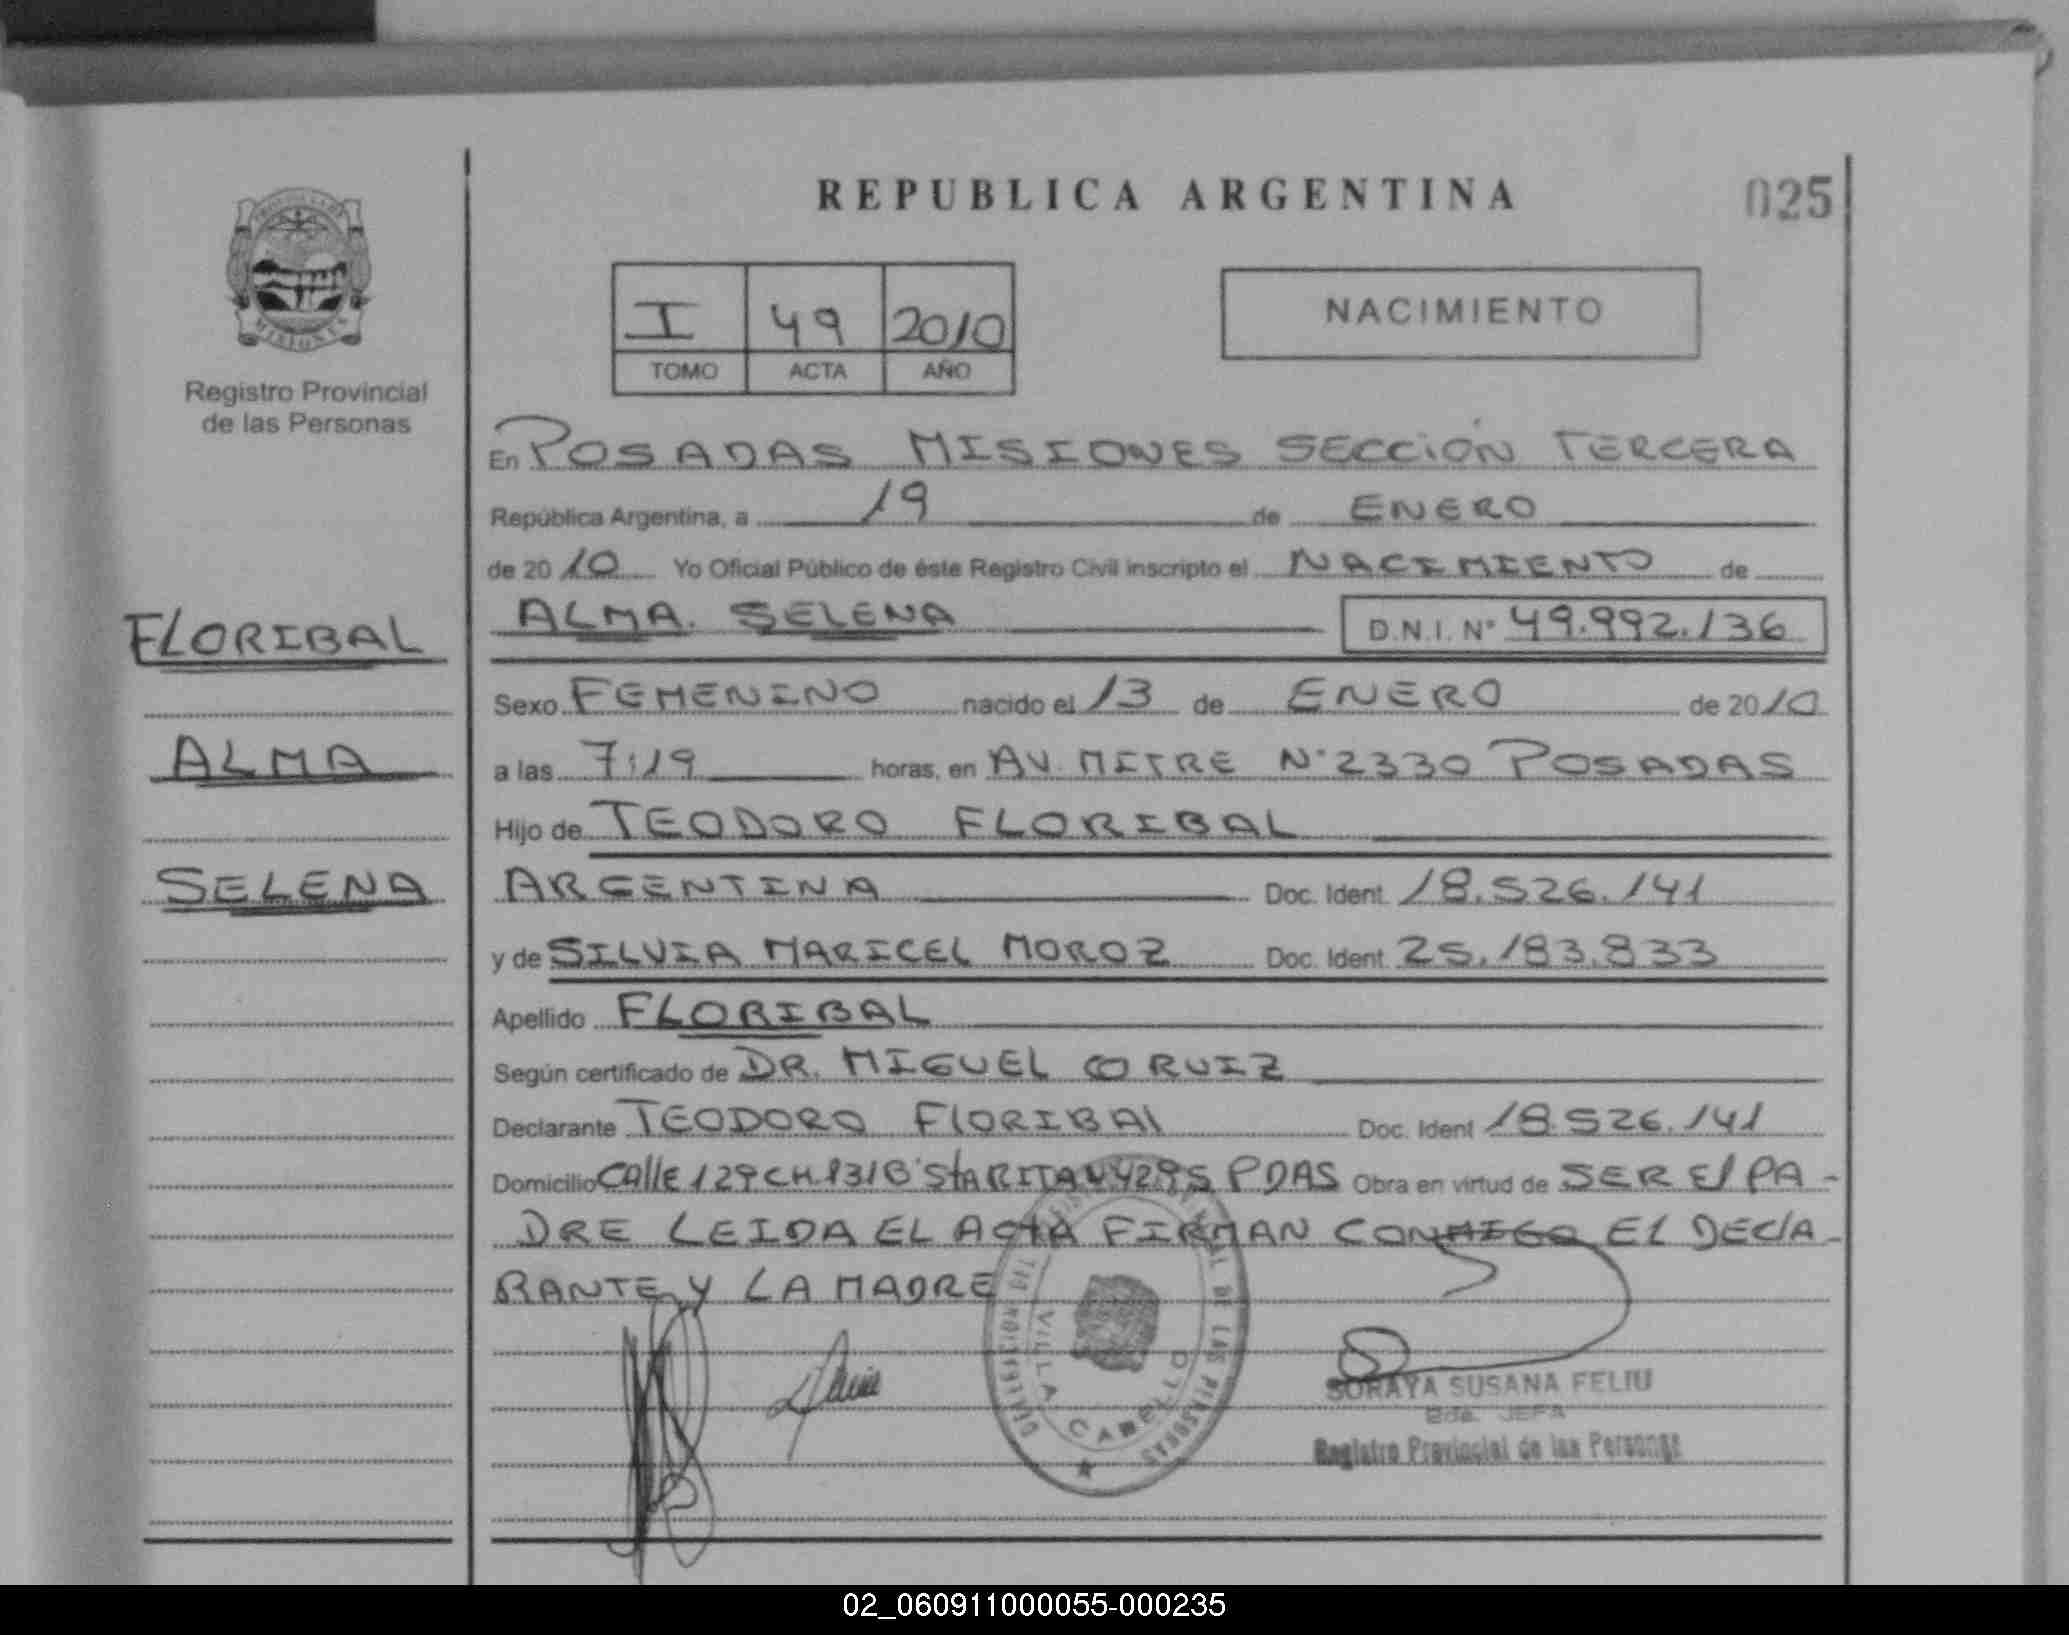 REPUBLICA ARGENTINA
025
I 49 2010
TOMO ACTA AÑO
NACIMIENTO
MISIONES
Registro Provincial
de las Personas
FLORIBAL
ALMA
SELENA
En POSADAS MISIONES SECCIÓN TERCERA
República Argentina, a 19 de ENERO
de 2010 Yo Oficial Público de éste Registro Civil inscripto el NACIMIENTO de
ALMA. SELENA D.N.I. Nº 49.992.136
Sexo FEMENINO nacido el 13 de ENERO de 2010
a las 7:19 horas, en AV. MITRE Nº 2330 POSADAS
Hijo de TEODORO FLORIBAL
ARGENTINA Doc. Ident. 18.526.141
y de SILVIA MARICEL MOROZ Doc. Ident. 25.183.833
Apellido FLORIBAL
Según certificado de DR. MIGUEL O RUIZ
Declarante TEODORO FlORIBAl Doc. Ident 18.526.141
Domicilio Calle 129 CH. StA RITA PDAS Obra en virtud de SER El PA-
DRE LEIDA EL ACTA FIRMAN CONMIGO EL DEClA-
RANTE Y LA MADRE
VILLA CABELLO
DE LAS PERSONAS
SORAYA SUSANA FELIU
2da. JEFA
Registro Provincial de las Personas
02_060911000055-000235